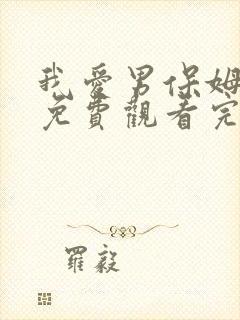 我愛男保姆
免費觀看完
羅毅